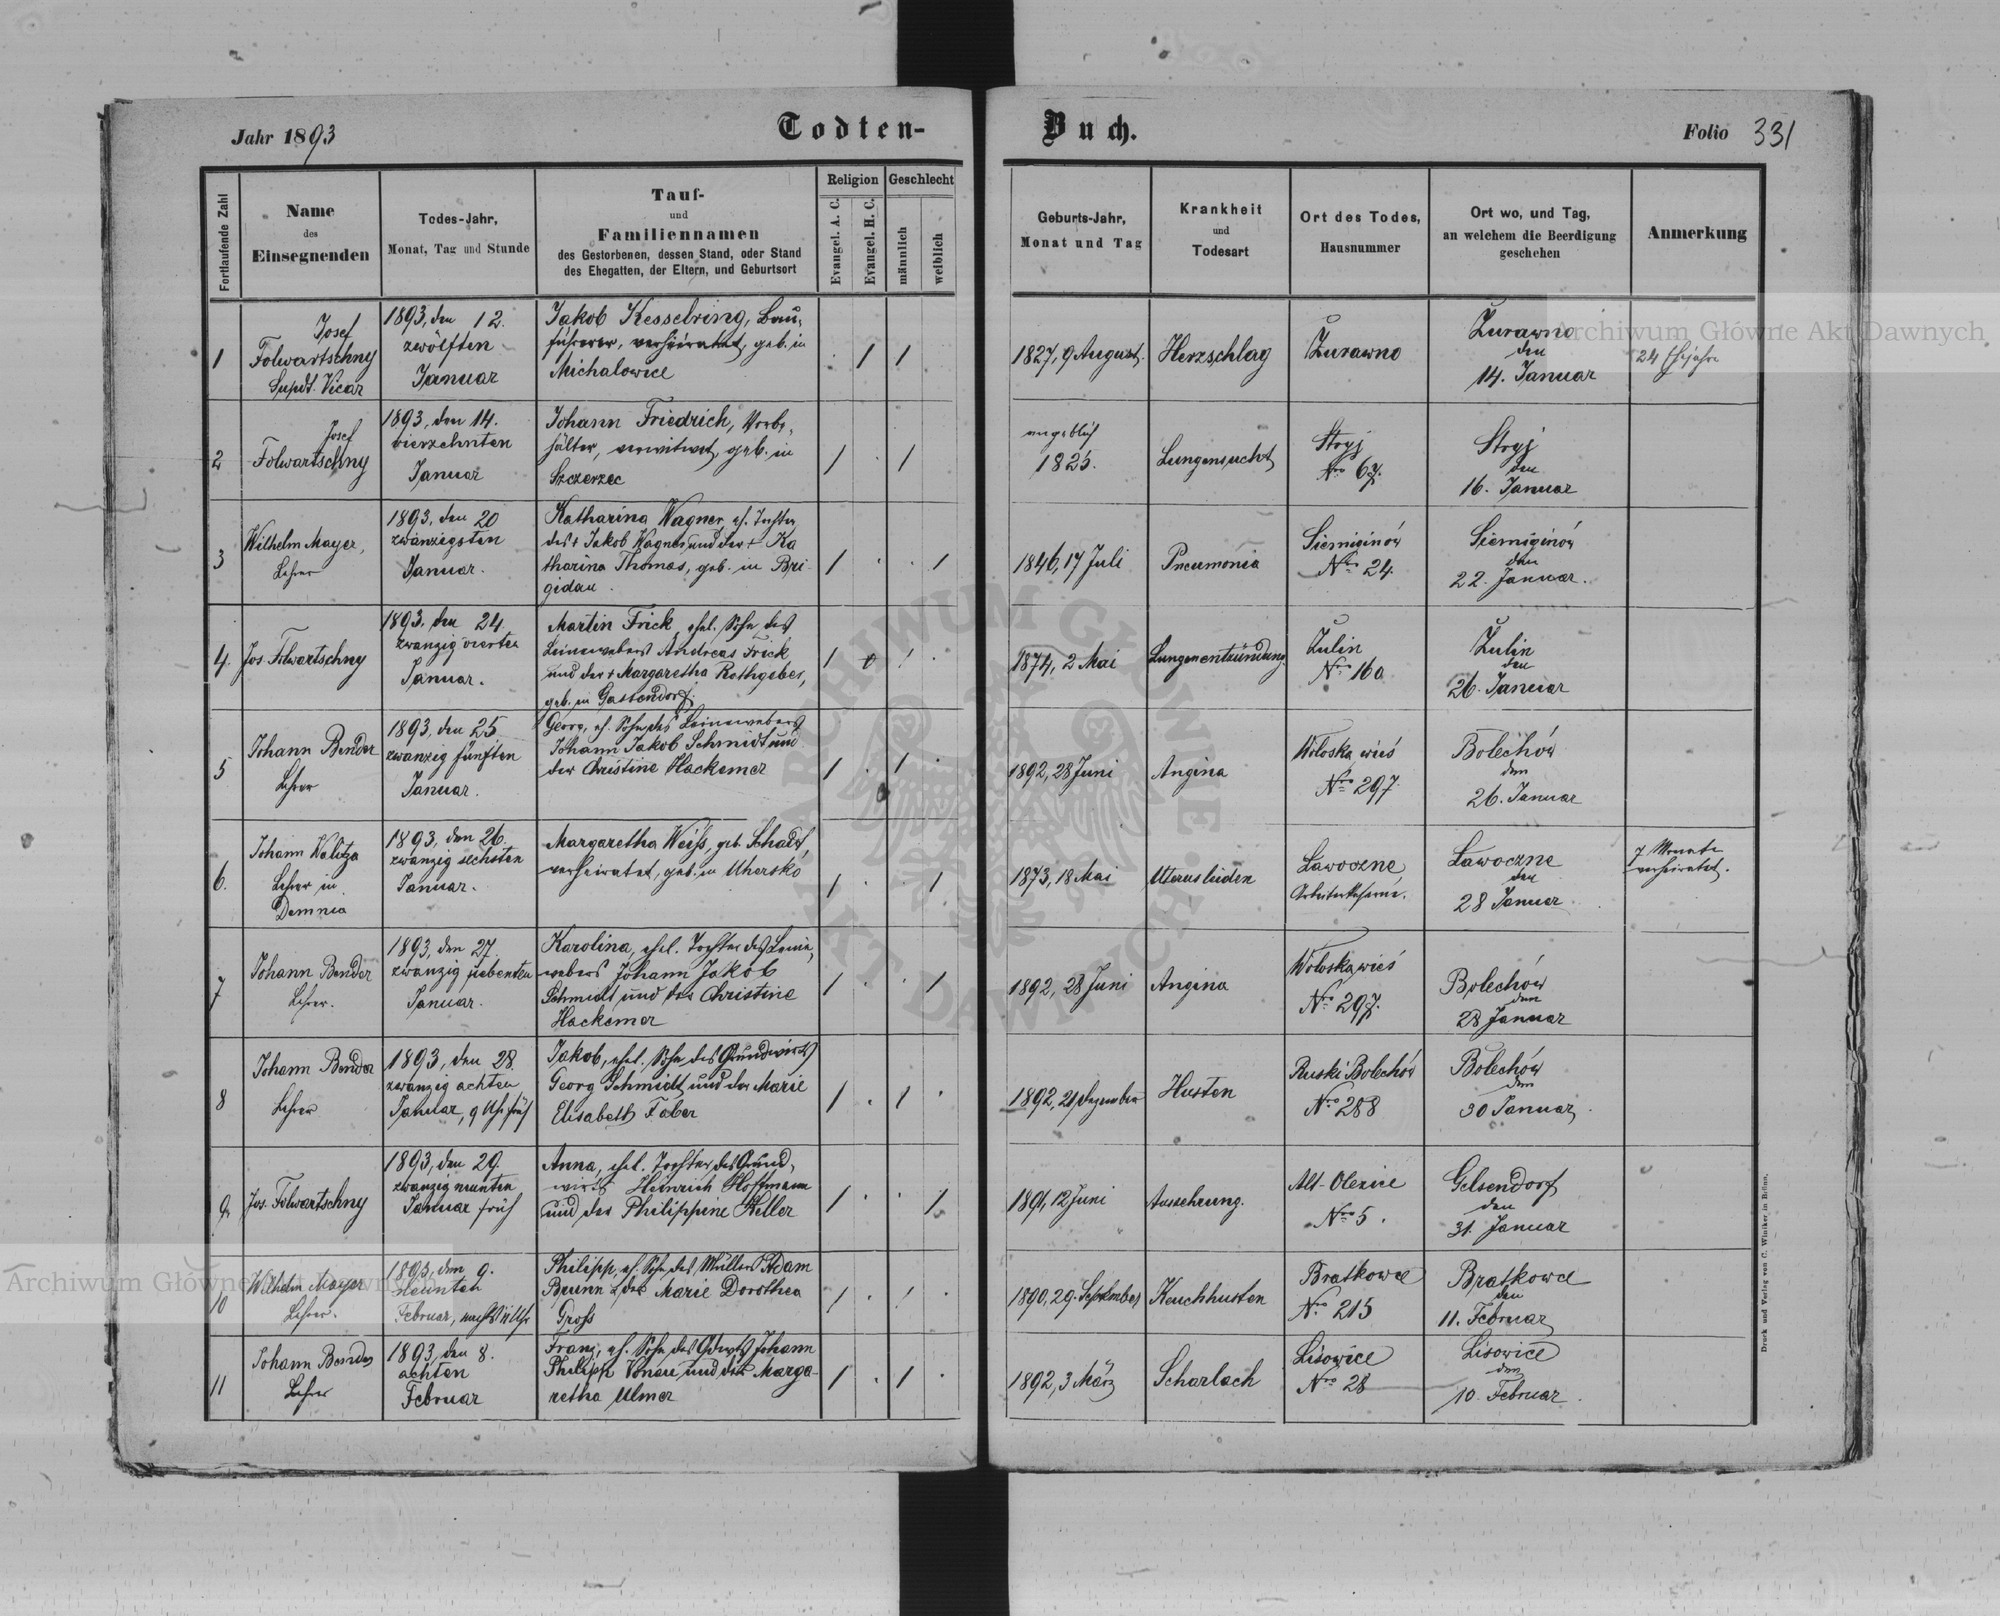 Jahr 1893
Todten-
Buch.
Folio 331
Fortlaufende Zahl
Name
des
Einsegnenden
Todes-Jahr,
Monat, Tag und Stunde
Tauf-
und
Familiennamen
des Gestorbenen, dessen Stand, oder Stand
des Ehegatten, der Eltern, und Geburtsort
Religion
Evangel. A. C.
Evangel. H. C.
Geschlecht
männlich
weiblich
Geburts-Jahr,
Monat und Tag
Krankheit
und
Todesart
Ort des Todes,
Hausnummer
Ort wo, und Tag,
an welchem die Beerdigung
geschehen
Anmerkung
1
Josef
Folwartschny
Supdt. Vicar
1893, den 12.
zwölften
Januar
Jakob Kesselring, Bau-
führer, verheiratet, geb. in
Michalowice
. / /
1827, 9 August.
Herzschlag
Żurawno
Żurawno
den
14. Januar
24 Ehejahre
2
Josef
Folwartschny
1893, den 14.
vierzehnten
Januar
Johann Friedrich,
verwitwet, geb. in
Szczerzec
/ . /
angeblich
1825.
Lungensucht
Stryj
Nro 67.
Stryj
den
16. Januar
3
Wilhelm Mayer,
Lehrer
1893, den 20
zwanzigsten
Januar.
Katharina Wagner, eh. Tochter
des + Jakob Wagner und der + Ka
tharina Thomas, geb. in Bri-
gidau.
/ . . /
1846, 17 Juli
Pneumonia
Siemiginów
Nro 24.
Siemiginów
den
22. Januar.
4.
Jos. Folwartschny
1893, den 24.
zwanzig vierten
Januar.
Martin Frick, ehel. Sohn des
Leinewebers Andreas Frick
und der + Margaretha Rothgeber,
geb. in Gassendorf.
/ / .
1874, 2 Mai
Lungenentzündung.
Żulin
Nro 160
Żulin
den
26. Januar
5
Johann Bender
Lehrer
1893, den 25.
zwanzig fünften
Januar.
Georg, eh. Sohn des Leinewebers
Johann Jakob Schmidt und
der Christine Hackemer
/ . / .
1892, 28 Juni
Angina
Wołoska wieś
Nro 297.
Bolechów
den
26. Januar
6.
Johann Walitza
Lehrer in
Demnia
1893, den 26.
zwanzig sechsten
Januar.
Margaretha Weiß, geb. Schade,
verheiratet, geb. in Uhersko
/ . . /
1873, 18 Mai
Uterusleiden
Lawoczne
Arbeiterkaserne.
Lawoczne
den
28 Januar
7 Monate
verheiratet.
7
Johann Bender
Lehrer.
1893, den 27
zwanzig siebenten
Januar.
Karolina, ehel. Tochter des Leine-
webers Johann Jakob
Schmidt und der Christine
Hackemer
/ . . /
1892, 28 Juni
Angina
Wołoska wieś
Nro 297.
Bolechów
den
28 Januar
8
Johann Bender
Lehrer
1893, den 28.
zwanzig achten
Januar, 9 Uhr früh
Jakob, ehel. Sohn des Grundwirts
Georg Schmidt und der Marie
Elisabeth Faber
/ . / .
1892, 21 Dezember
Husten
Ruski Bolechów
Nro 288
Bolechów
den
30 Januar.
9.
Jos. Folwartschny
1893, den 29.
zwanzig neunten
Januar früh
Anna, ehel. Tochter des Grund-
wirts Heinrich Hoffmann
und der Philippine Keller
/ . . /
1891, 12 Juni
Auszehrung.
Alt-Olexice
Nro 5.
Gelsendorf
den
31. Januar
10
Wilhelm Mayer
Lehrer.
1893, den 9.
Neunten
Februar, nachts 11 Uhr
Philipp, eh. Sohn des Müllers Adam
Brunn u der Marie Dorothea
Groß
/ . / .
1890, 29. September
Keuchhusten
Bratkowce
Nro 215
Bratkowce
den
11. Februar
11
Johann Bender
Lehrer
1893, den 8.
achten
Februar
Franz, eh. Sohn des Gdwrts Johann
Philipp Vonau und der Marga-
retha Ulmer
/ . / .
1892, 3 März
Scharlach
Lisowice
Nro 28
Lisowice
den
10. Februar.
Druck und Verlag von C. Winiker in Brünn.
Archiwum Główne Akt Dawnych
Archiwum Główne Akt Dawnych
ARCHIWUM GŁÓWNE AKT DAWNYCH